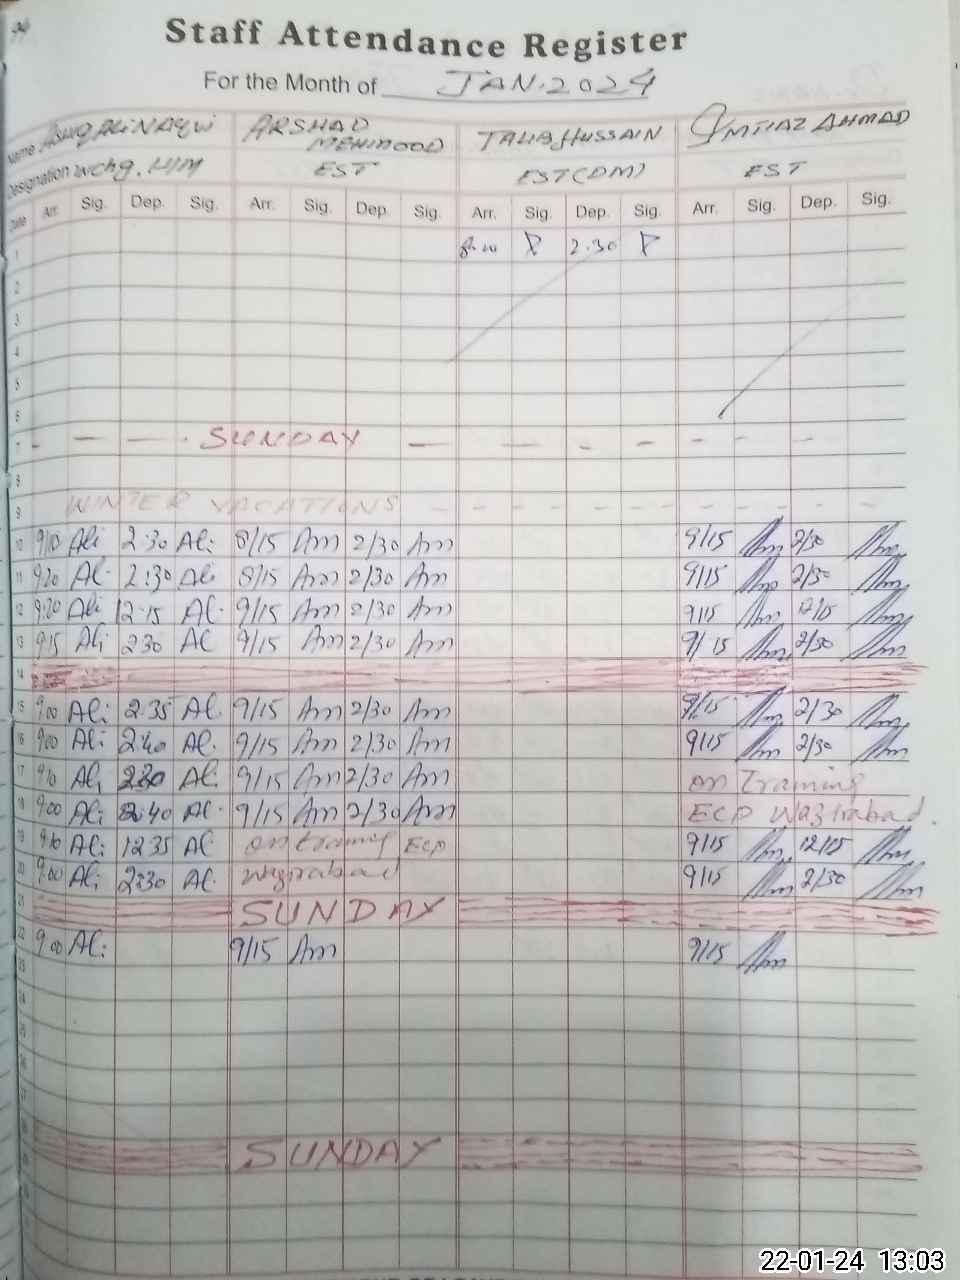 Staff Attendance Register
For the Month of JAN.2024
Name ALI NAQVI ARSHAD MEHMOOD TALIB HUSSAIN IMTIAZ AHMAD
Designation Wchg. H/M EST EST(DM) EST
Date Arr. Sig. Dep. Sig. Arr. Sig. Dep. Sig. Arr. Sig. Dep. Sig. Arr. Sig. Dep. Sig.
1 2.30
2
3
4
5
6
7 - - - SUNDAY - - - - - - - -
8
9 WINTER VACATIONS - - - - - - - - -
10 9/10 Ali 2.30 Ali 8/15 Am 2/30 Am 9/15 2/30
11 9:20 Al. 2:30 Ali 8/15 Am 2/30 Am 9/15 2/30
12 9:20 Ali 12.15 Al. 9/15 Am 2/30 Am 9/15 12/15
13 9:15 Ali 230 Al 9/15 Am 2/30 Am 9/15 2/30
14
15 9.00 Ali 2.35 Al. 9/15 Am 2/30 Am 9/15 2/30
16 9.00 Ali 2.40 Al. 9/15 Am 2/30 Am 9/15 2/30
17 9/10 Ali 230 Al. 9/15 Am 2/30 Am on Training
18 9.00 Ali 2.40 Al. 9/15 Am 2/30 Am ECP Wazirabad.
19 9.10 Ali 1235 Al on training ECP 9/15 12/15
20 9.00 Ali 2:30 Al. Wazirabad 9/15 2/30
21 SUNDAY
22 9.00 Ali 9/15 Am 9/15
23
24
25
26
27
SUNDAY
22-01-24 13:03